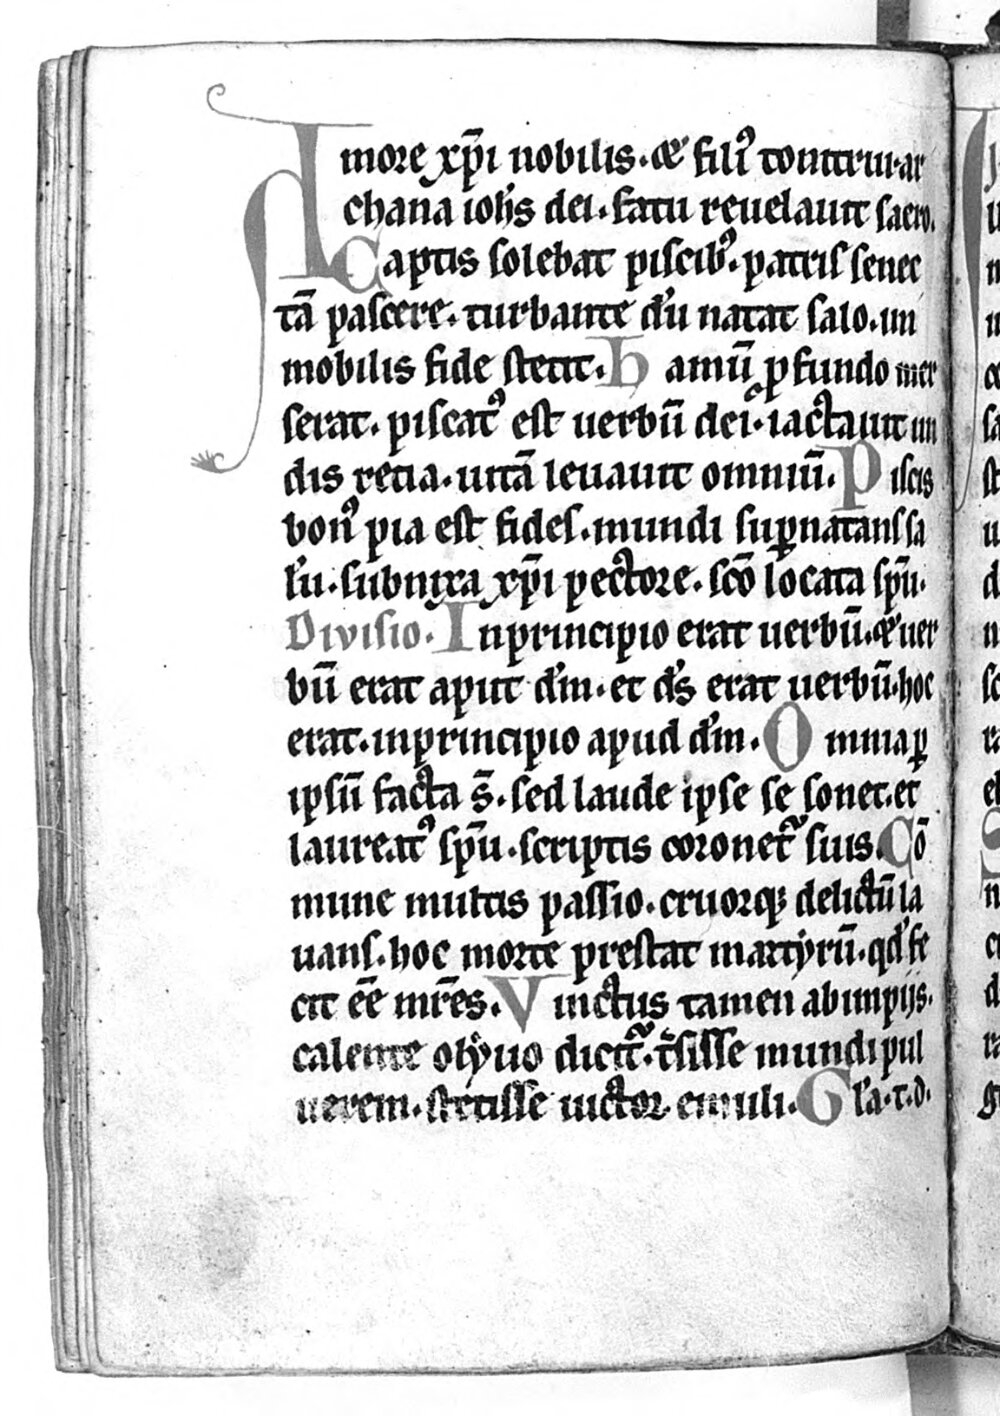 Amore xp̄i nobilis· & filiꝰ tonitrui· ar
chana ioh̄s dei· fatu reuelauit sacro.
Captis solebat piscibꝰ· patris senec
tā pascere· turbante dū natat salo· im
mobilis fide stetit· Hamū ꝓfundo mer
serat· piscatꝰ est uerbū dei· iactauit un
dis retia· uitā leuauit omniū· Piscis
bonꝰ pia est fides· mundi suꝑnatans sa
lū· subnixa xp̄i pectore· sc̄o locata sp̄u·
Divisio· In principio erat uerbū· & uer
bū erat aput dm̄· et ds̄ erat uerbū· hoc
erat· in principio apud dm̄· Omnia ꝑ
ipsū facta s̄· sed laude ipse se sonet· et
laureatꝰ sp̄u· scriptis coronet᷑ suis· Cō
mune multis passio· cruorqꝫ delictū la
uans· hoc morte prestat martyrū· qd̄ fe
cit ēe mr̄es· Vinctus tamen ab impijs·
calente olyuo dicit᷑· t̄sisse mundi pul
uerem· stetisse uictor emuli· Gl̄a· t· d·